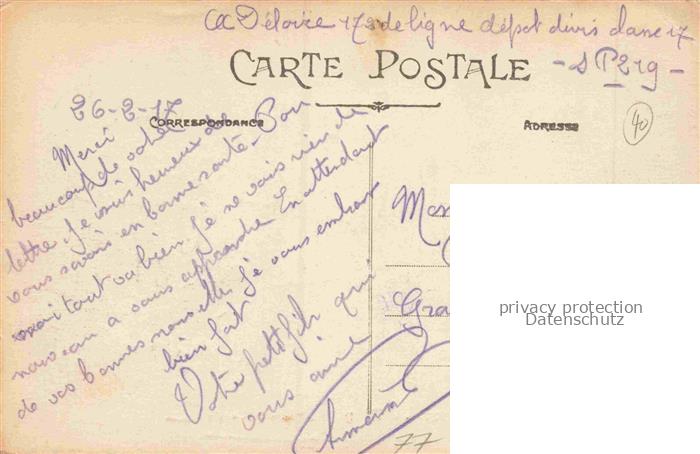 Déloire 172 de ligne dépot divis danc 17
CARTE POSTALE
- S P 219 -
26-2-17
CORRESPONDANCE
ADRESSE
40
Merci
beaucoup de votre
lettre. Je suis heureux de
vous savoir en bonne santé. Pour
moi tout va bien. Je ne vois rien de
nouveau a vous apprendre En attendant
de vos bonnes nouvelles je vous embrasse
bien fort
Votre petit fils qui
vous aime
Mon
Gra
privacy protection
Datenschutz
77